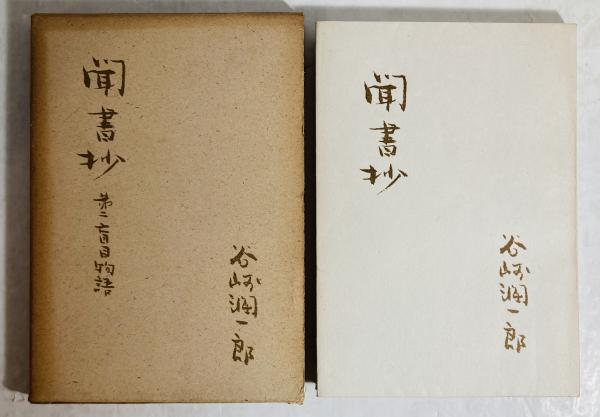 聞書抄
第二盲目物語
谷崎潤一郎
聞書抄
谷崎潤一郎